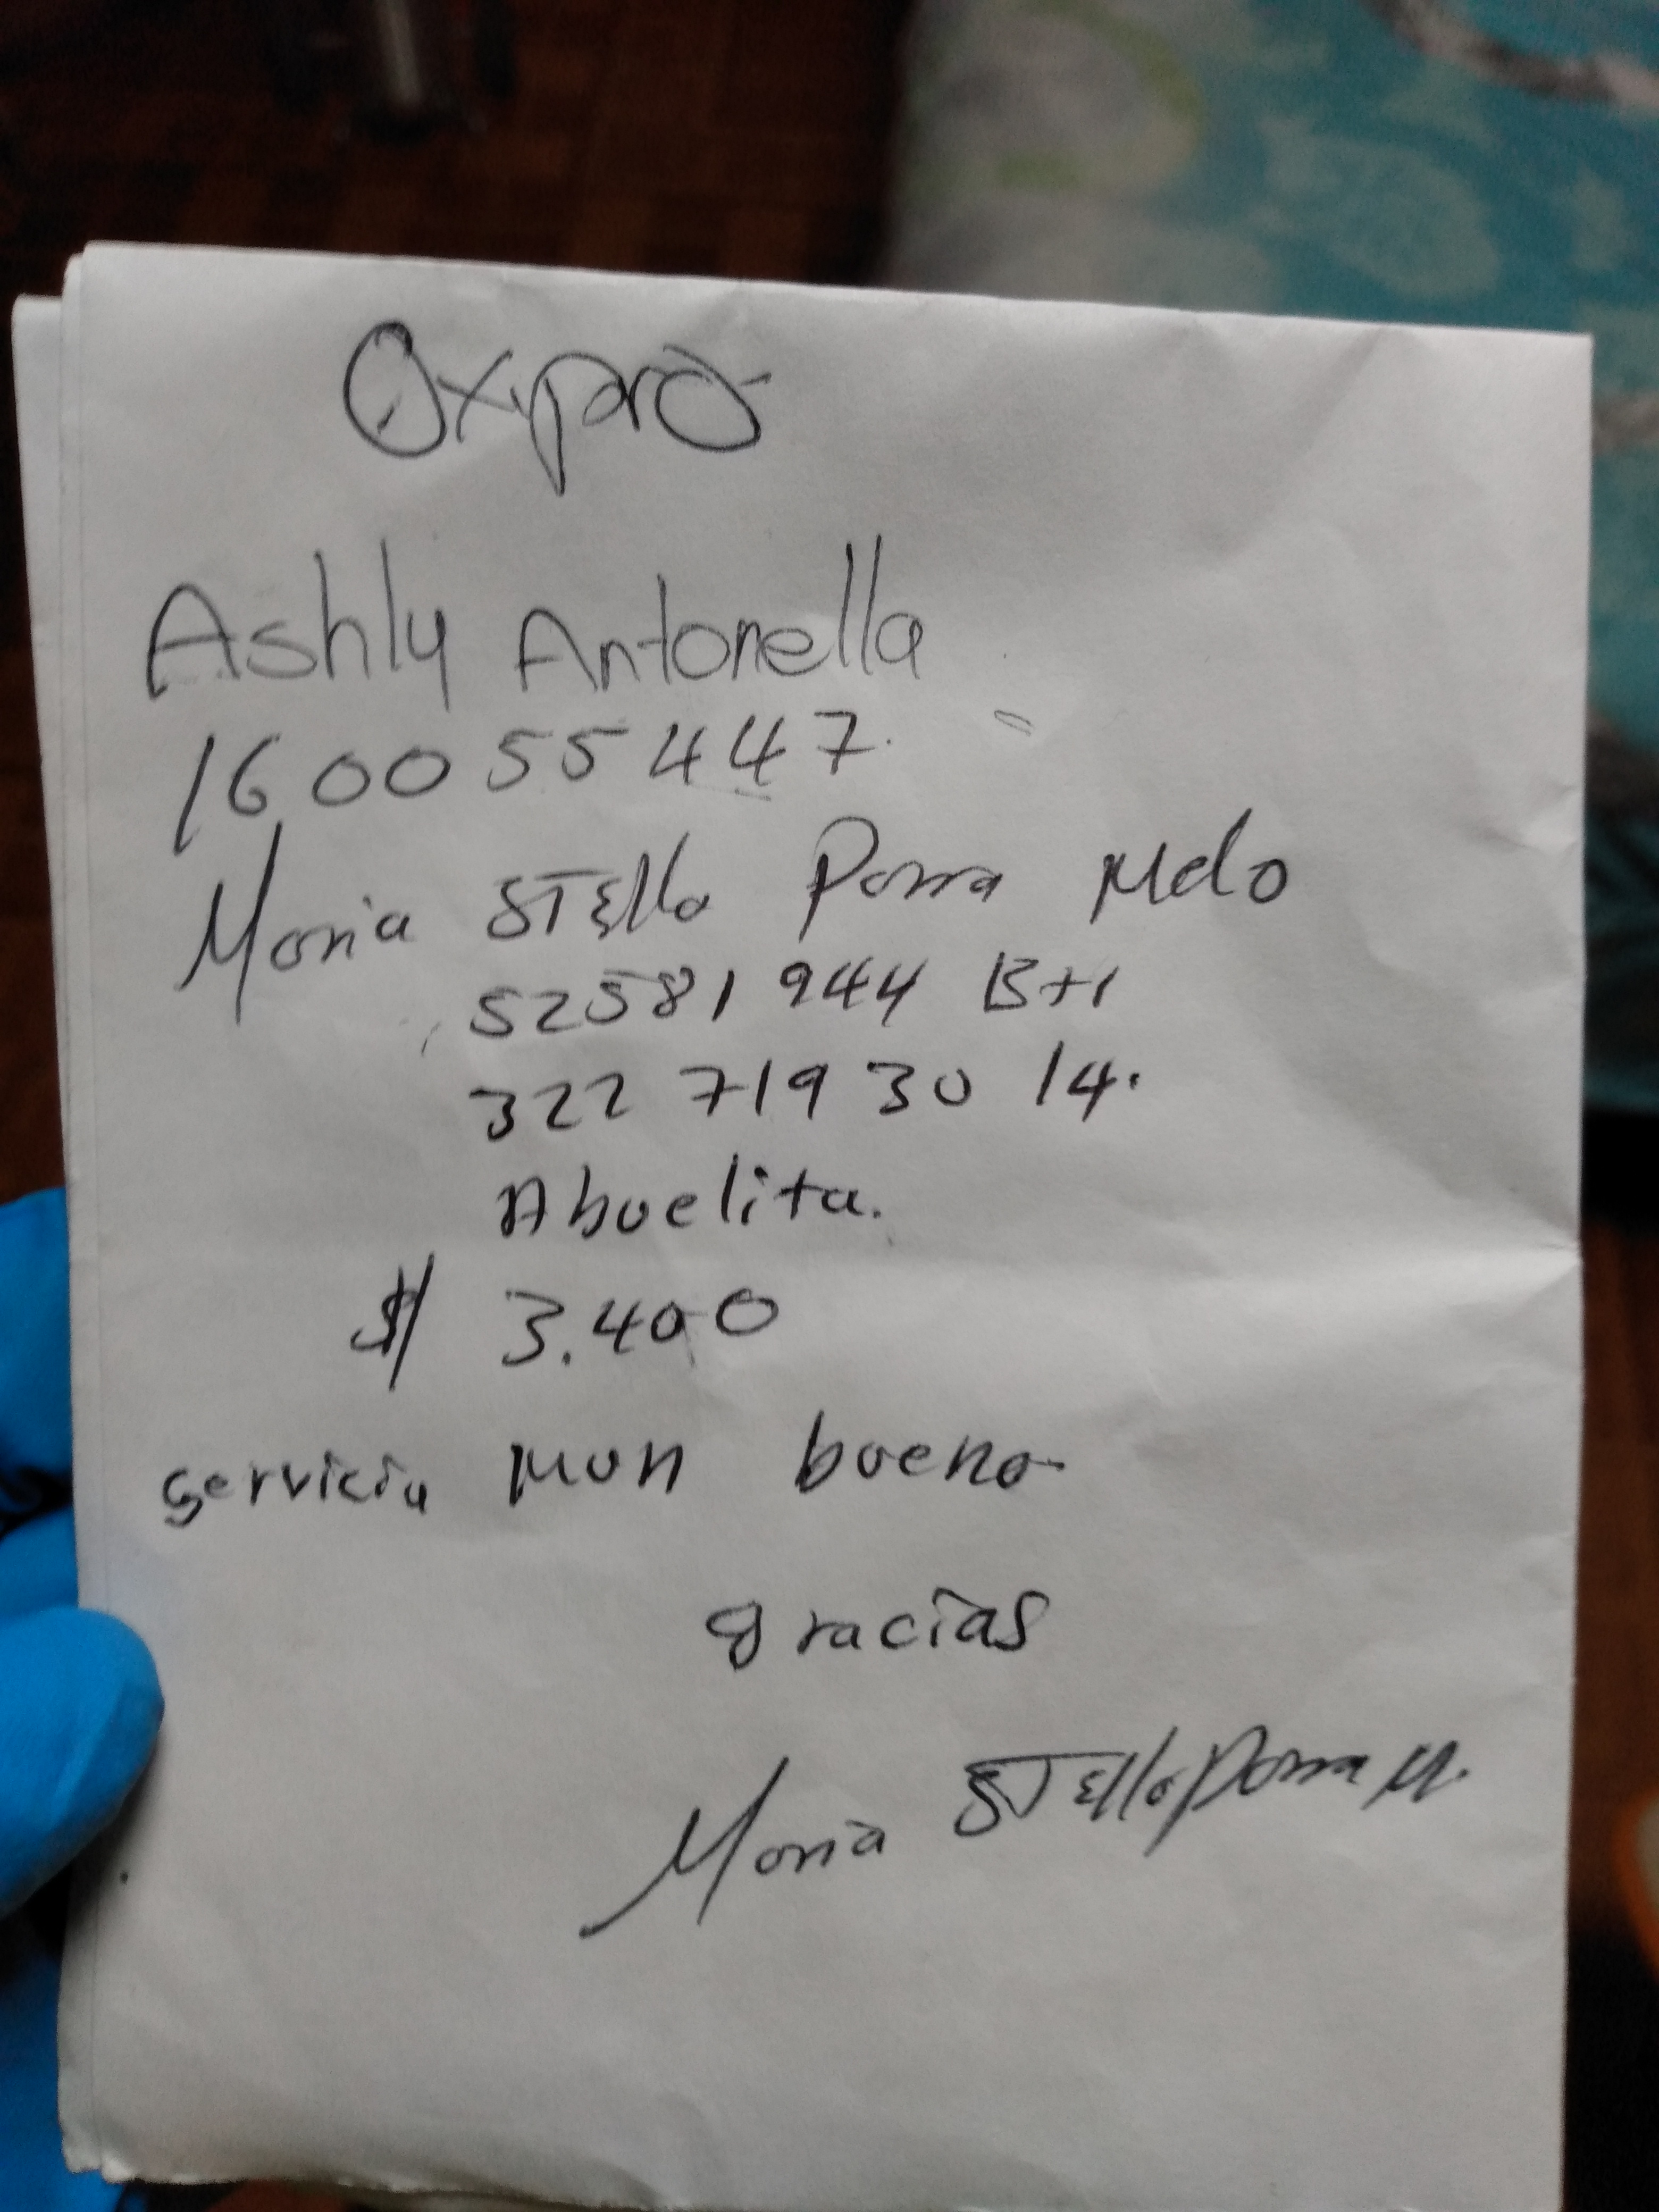 Oxipro
Ashly Antonella
1600 55 447.
Maria STElla Parra Melo
52581 944 Bta
322 719 30 14.
Abuelita.
$/ 3.400
servicio Muy bueno
gracias
Maria STElla Parra M.